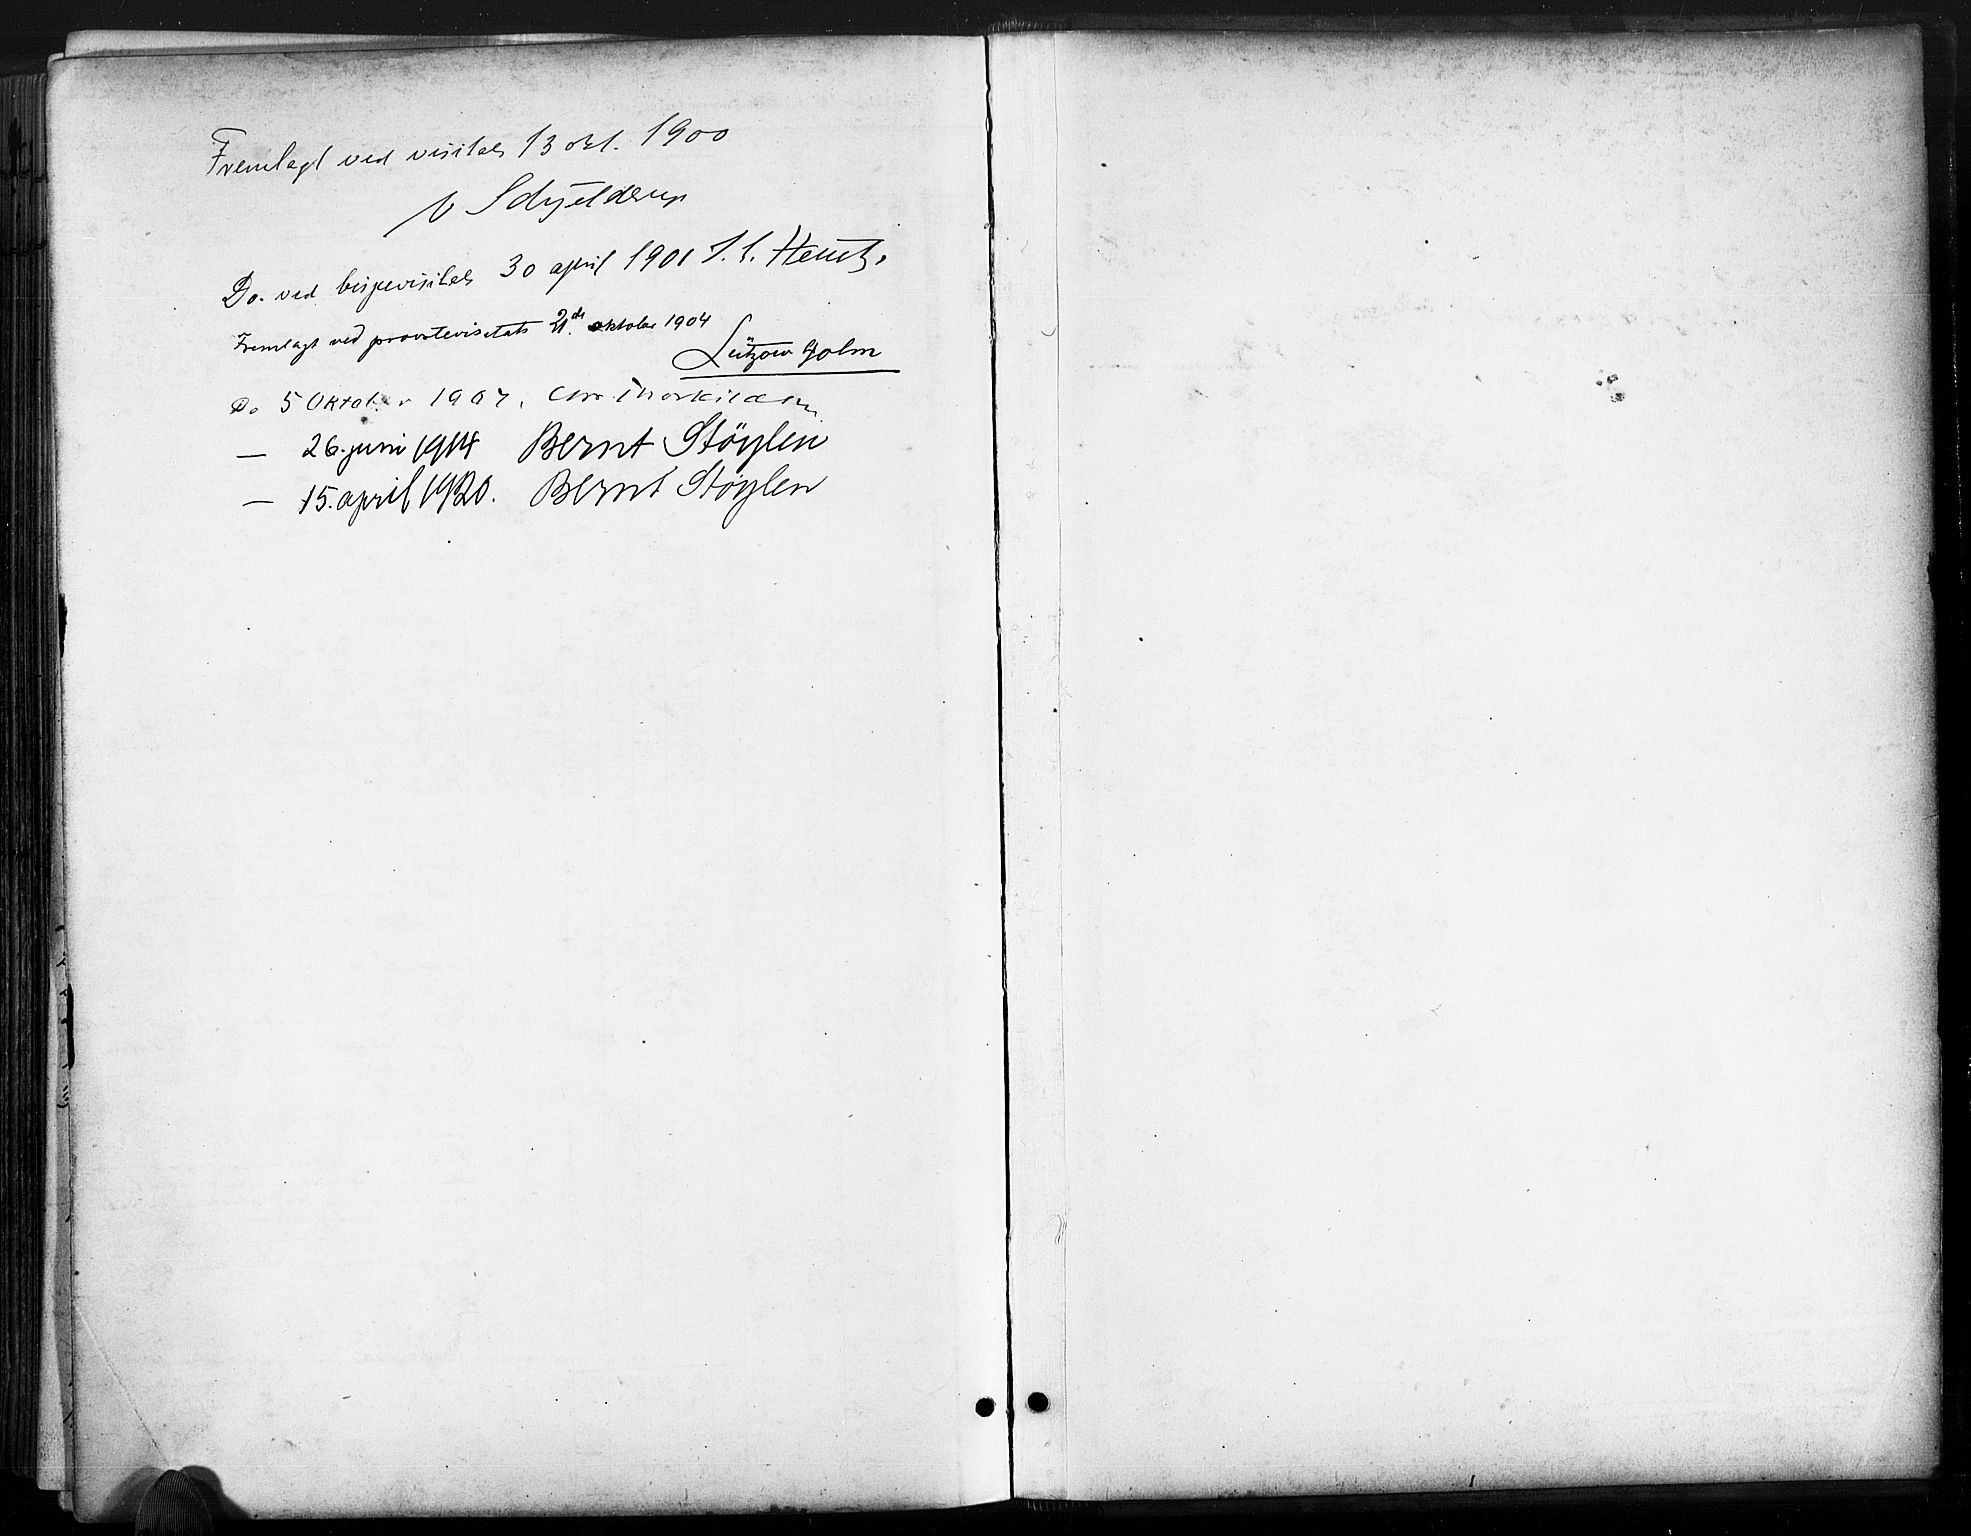 Fremlagt ved visitas 13 okt. 1900
V Schjelderup
Do. ved bispevisitas 30 april 1901 J. C. Heuch.
Fremlagt ved provstevisitats 21de oktober 1904
Lützow Holm
Do 5 Oktober 1907. Chr Thorkildsen
— 26. juni 1914 Bernt Støylen
— 15. april 1920. Bernt Støylen